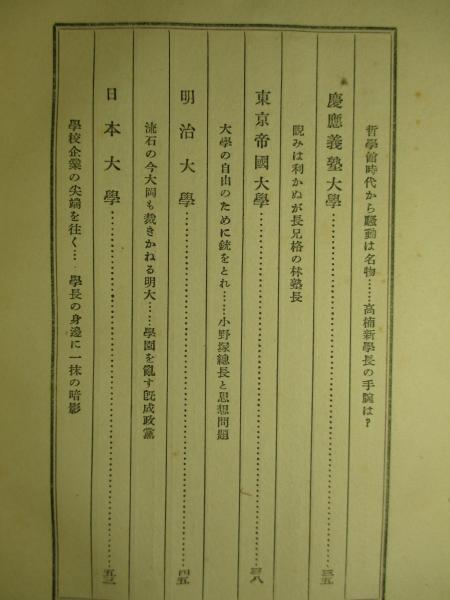 哲學館時代から騷動は名物……高楠新學長の手腕は?
慶應義塾大學……………三五
睨みは利かぬが長兄格の林塾長
東京帝國大學……………三八
大學の自由のために銃をとれ……小野塚總長と思想問題
明治大學……………四五
流石の今大岡も裁きかねる明大……學園を亂す既成政黨
日本大學……………五二
學校企業の尖端を往く……學長の身邊に一抹の暗影